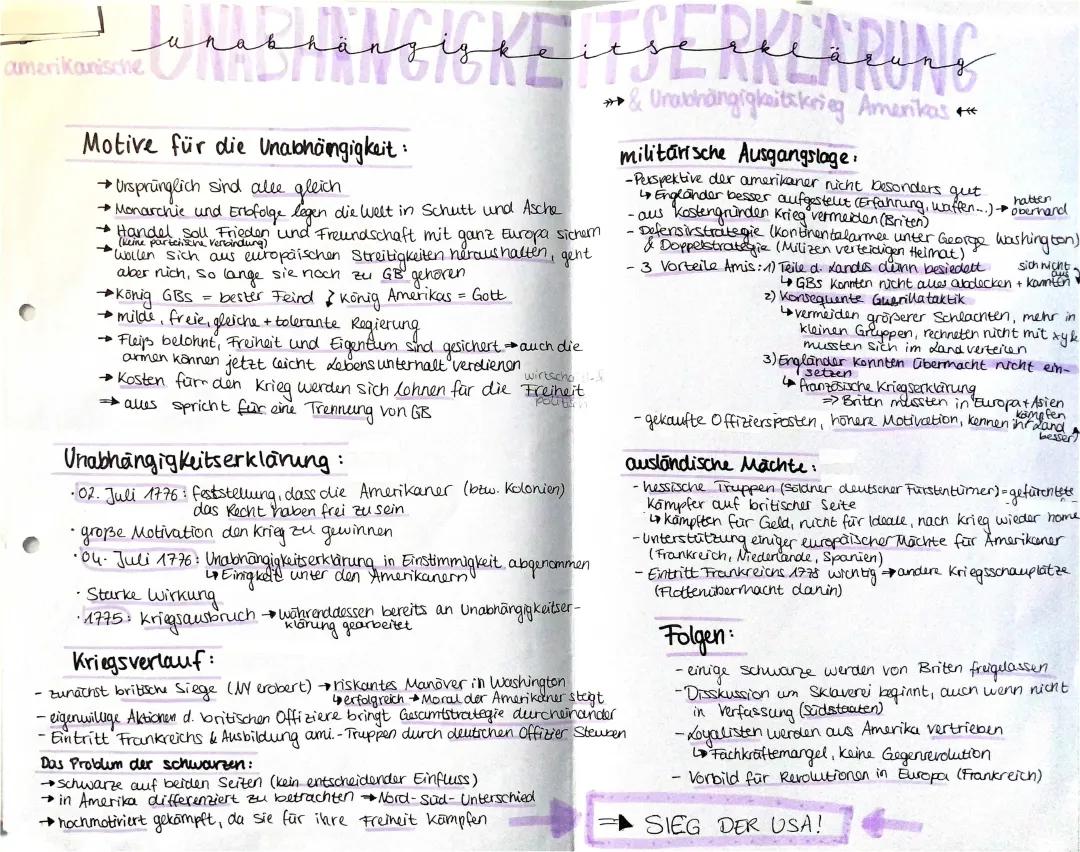 amerikanische UNABHÄNGIGKEITSERKLÄRUNG
unabhängigkeitserklärung
& Unabhängigkeitskrieg Amerikas
Motive für die Unabhängigkeit:
→ Ursprünglich sind alle gleich
→ Monarchie und Erbfolge legen die Welt in Schutt und Asche
→ Handel soll Frieden und Freundschaft mit ganz Europa sichern
(keine parteiische Verbindung)
→ wollen sich aus europäischen Streitigkeiten heraushalten, geht
aber nich, so lange sie noch zu GB gehören
→ König GBs = bester Feind König Amerikas = Gott
→ milde, freie, gleiche + tolerante Regierung
→ Fleiß belohnt, Freiheit und Eigentum sind gesichert → auch die
armen können jetzt leicht Lebensunterhalt verdienen
→ Kosten für den Krieg werden sich lohnen für die Freiheit
⇒ alles spricht für eine Trennung von GB
Unabhängigkeitserklärung:
· 02. Juli 1776: Feststellung, dass die Amerikaner (bzw. Kolonien)
das Recht haben frei zu sein
· große Motivation den Krieg zu gewinnen
· 04. Juli 1776: Unabhängigkeitserklärung in Einstimmigkeit abgenommen
↳ Einigkeit unter den Amerikanern
· Starke Wirkung
· 1775: Kriegsausbruch → währenddessen bereits an Unabhängigkeitser-
klärung gearbeitet
Kriegsverlauf:
- zunächst britische Siege (NY erobert) → riskantes Manöver in Washington
↳ erfolgreich → Moral der Amerikaner steigt
- eigenwillige Aktionen d. britischen Offiziere bringt Gesamtstrategie durcheinander
- Eintritt Frankreichs & Ausbildung ami.-Truppen durch deutschen Offizier Steuben
Das Problem der schwarzen:
→ schwarze auf beiden Seiten (kein entscheidender Einfluss)
→ in Amerika differenziert zu betrachten → Nord-Süd-Unterschied
→ hochmotiviert gekämpft, da sie für ihre Freiheit kämpfen
militärische Ausgangslage:
- Perspektive der amerikaner nicht besonders gut
↳ Engländer besser aufgestellt (Erfahrung, Waffen...) → hatten oberhand
- aus Kostengründen Krieg vermeiden (Briten)
- Defensivstrategie (Kontinentalarmee unter George Washington)
& Doppelstrategie (Milizen verteidigen Heimat)
- 3 Vorteile Amis: 1) Teile d. Landes dünn besiedelt
↳ GBs konnten nicht alles abdecken + kannten sich nicht aus
2) Konsequente Guerillataktik
↳ vermeiden größerer Schlachten, mehr in
kleinen Gruppen, rechneten nicht mit
mussten sich im Land verteilen
3) Engländer konnten Übermacht nicht ein-
setzen
↳ Französische Kriegserklärung
⇒ Briten mussten in Europa + Asien
kämpfen
- gekaufte Offiziersposten, höhere Motivation, kennen ihr Land
besser
ausländische Mächte:
- hessische Truppen (Söldner deutscher Fürstentümer) = gefürchtete
Kämpfer auf britischer Seite
↳ Kämpften für Geld, nicht für Ideale, nach Krieg wieder home
- Unterstützung einiger europäischer Mächte für Amerikaner
(Frankreich, Niederlande, Spanien)
- Eintritt Frankreichs 1778 wichtig → andere Kriegsschauplätze
(Flottenübermacht darin)
Folgen:
- einige schwarze werden von Briten freigelassen
- Disskussion um Sklaverei beginnt, auch wenn nicht
in Verfassung (Südstaaten)
- Loyalisten werden aus Amerika vertrieben
↳ Fachkräftemangel, keine Gegenrevolution
- Vorbild für Revolutionen in Europa (Frankreich)
⇒ SIEG DER USA!